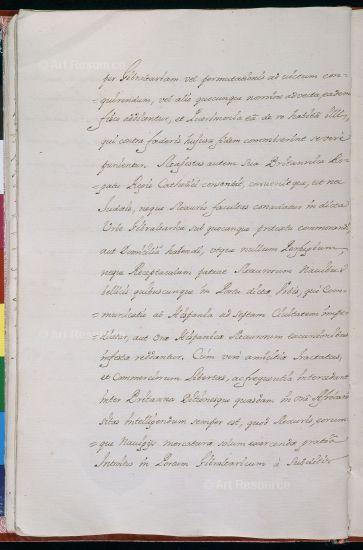 per Gibraltariam vel permutationis ad victum con-
=quirendum, vel alio quocunque nomine advecta, eadem
fisco addicantur, et Querimonia eâ de re habitâ illi,
qui contra foederis hujusce fidem commiserint severè
punientur. Majestas autem Sua Britannica Ro-
gatu Regis Catholici consentit, convenitque, ut ne
Judaeis, neque Mauris facultas concedatur in dictâ
Urbe Gibraltarica sub quocunque praetextu commorandi,
aut Domicilium habendi, utque nullum Perfugium,
neque Receptaculum pateat Maurorum Navibus
bellicis quibuscunque in Portu dictae Urbis, quo Com-
=municatio ab Hispania ad Septam Civitatem impe-
diatur, aut orae Hispanicae Maurorum incursionibus
infestae reddantur. Cùm verò amicitiae Tractatus,
et Commerciorum Libertas, ac frequentia intercedant
inter Britannos Ditionesque quasdam in orâ Africanâ
sitas intelligendum semper est, quod Mauris, eorum-
que Navigijs mercaturae solum exercendae gratiâ
Introitus in Portum Gibraltaricum à Subditis
© Art Resource
© Art Resource
© Art Resource
Art Resource